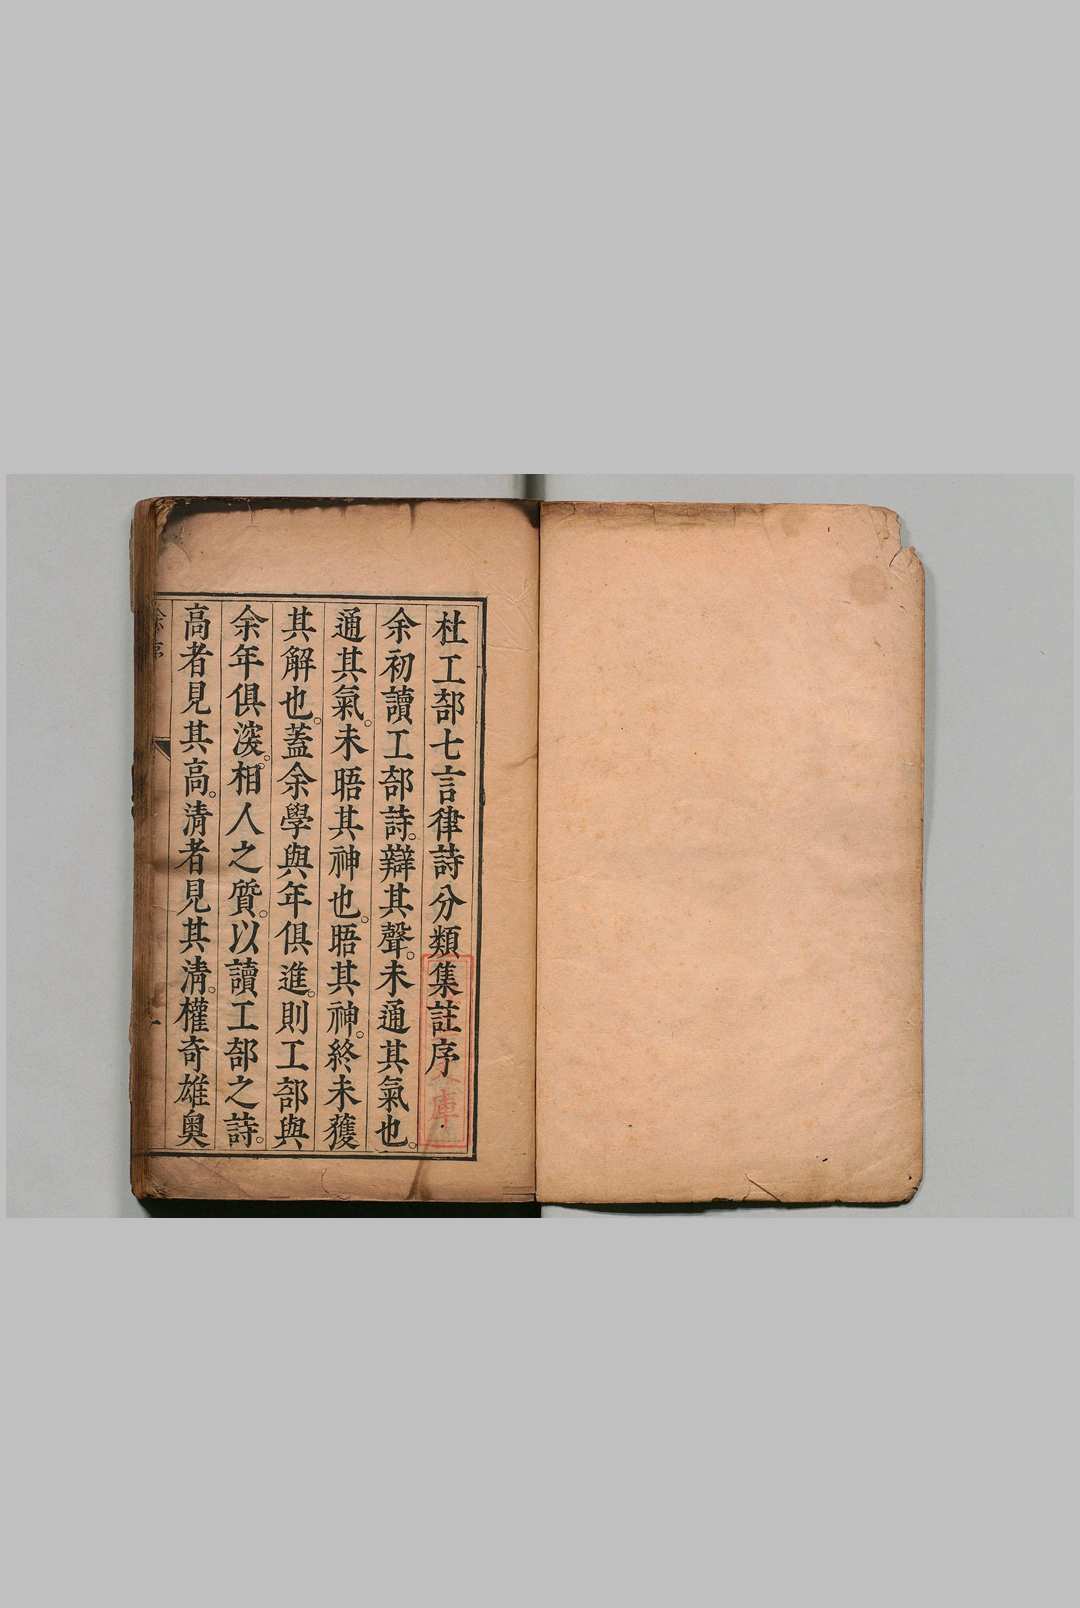 杜工部七言律詩分類集註序
余初讀工部詩。辯其聲。未通其氣也。
通其氣。未晤其神也。晤其神。終未獲
其解也。蓋余學與年俱進。則工部與
余年俱深。相人之質。以讀工部之詩。
高者見其高。清者見其清。權奇雄奥